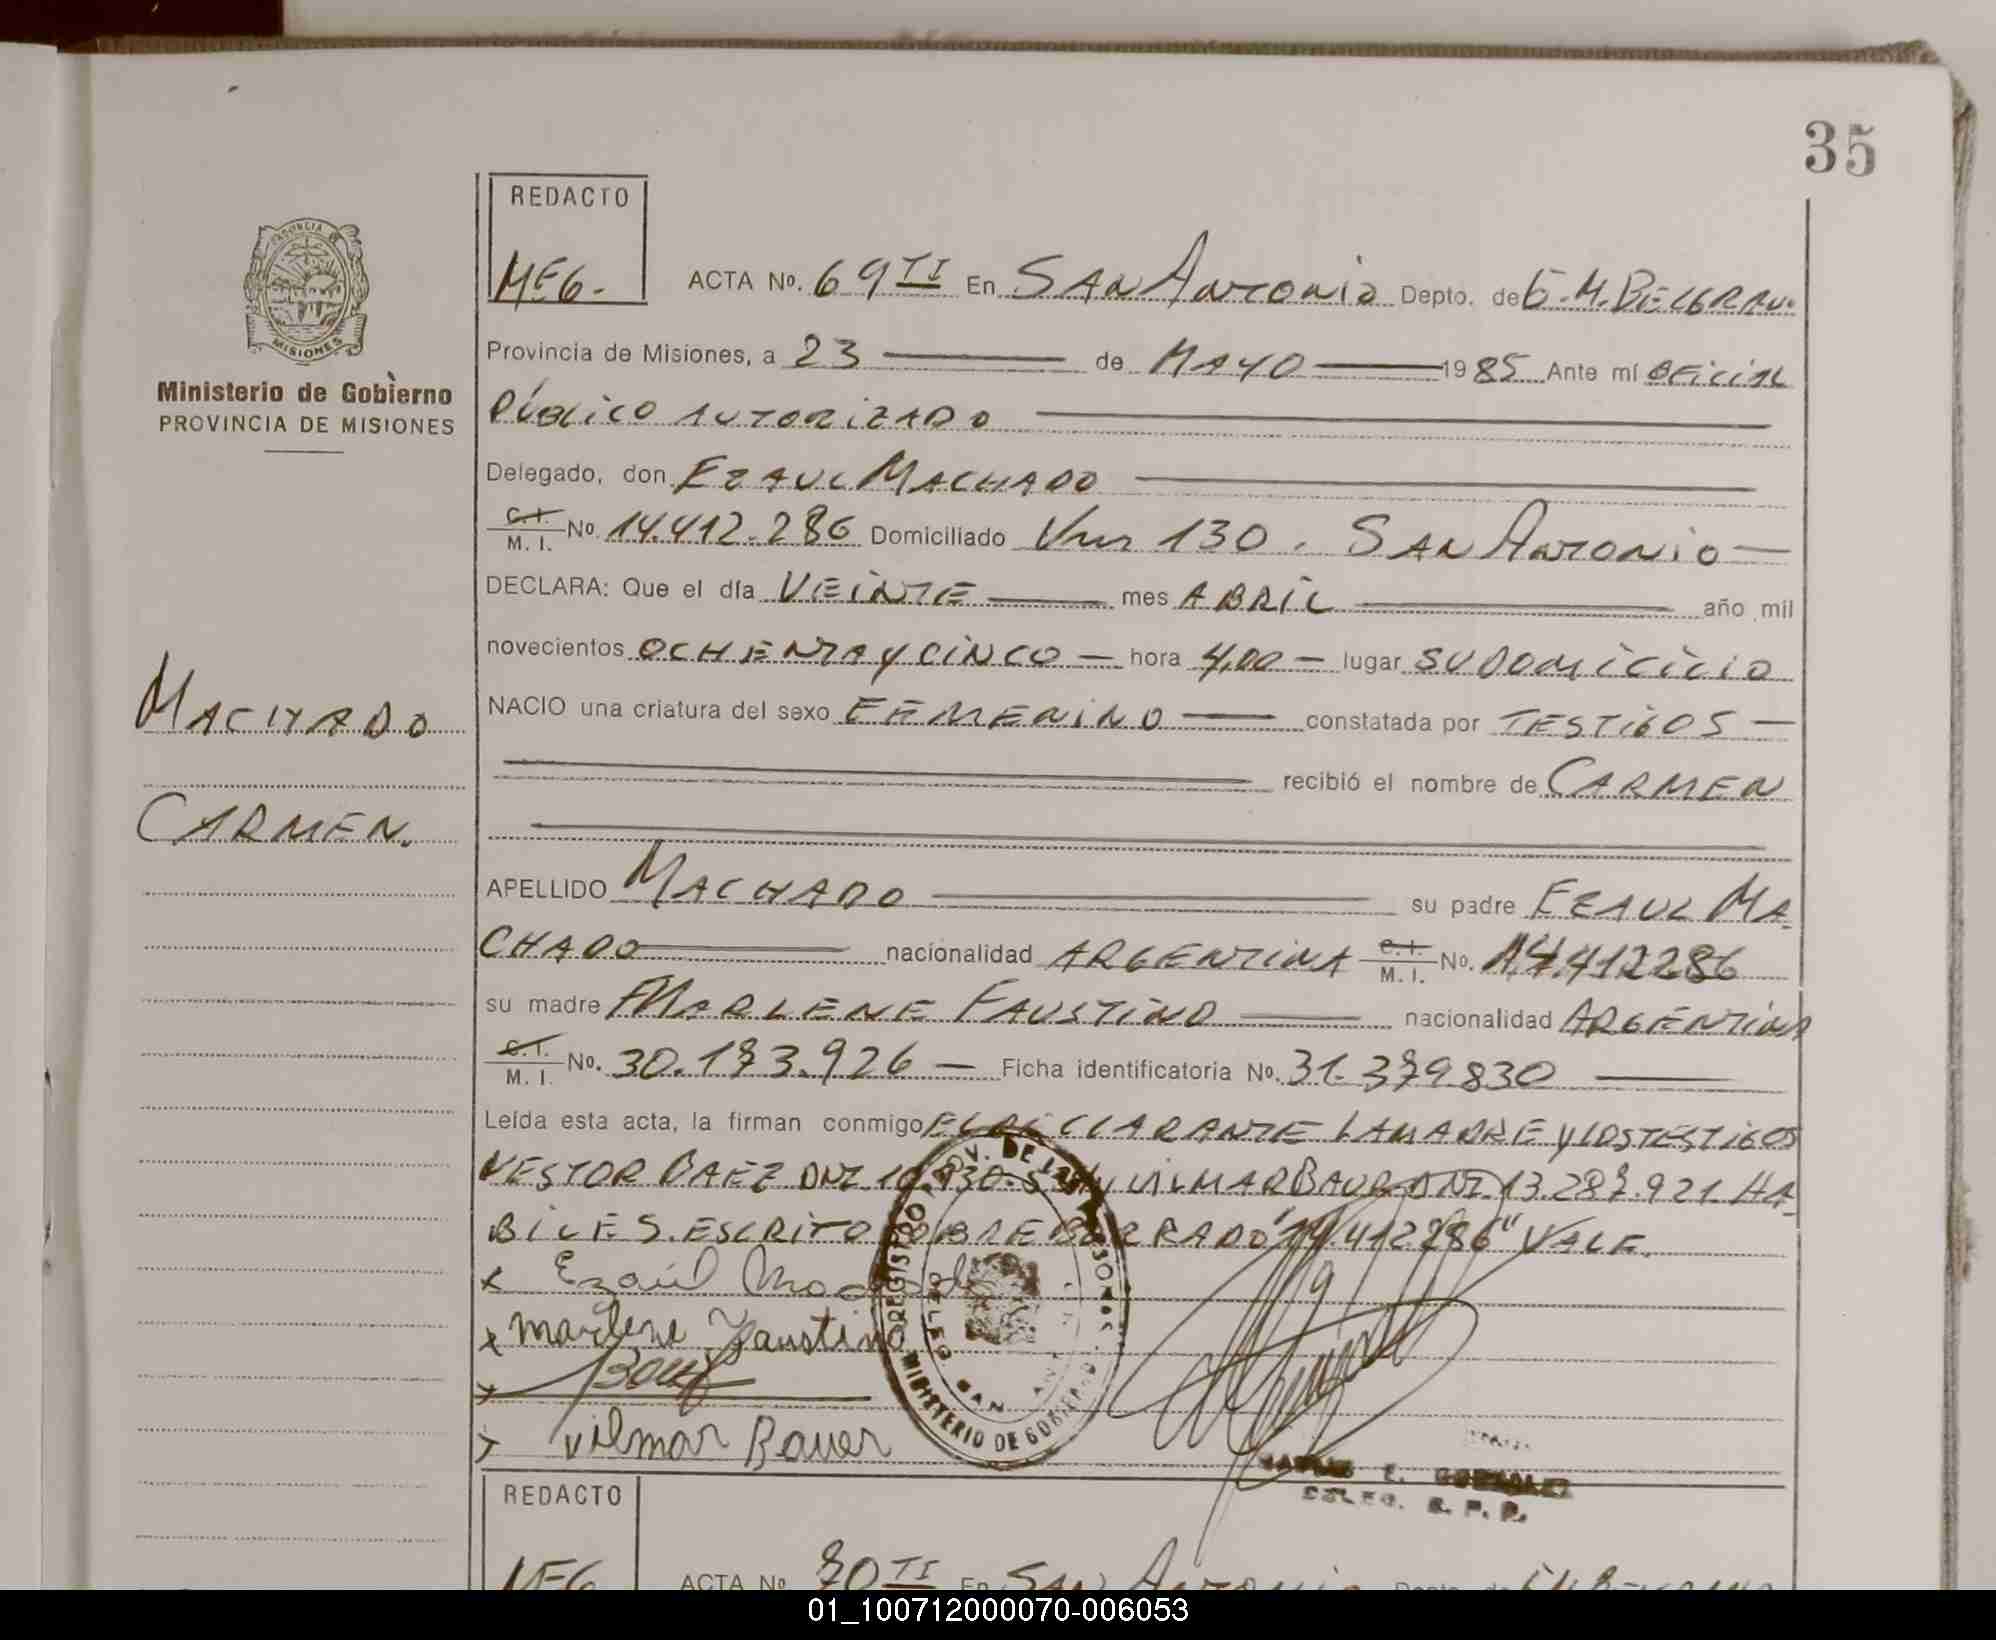 35
REDACTO
MEG.
ACTA Nº. 69 TI En SAN ANTONIO Depto. de G.M. BELGRANO
Provincia de Misiones, a 23 de MAYO 1985 Ante mí OFICIAL
PÚBLICO AUTORIZADO
Delegado, don EZAUL MACHADO
C.I. M. I. Nº. 14.412.286 Domiciliado Km 130. SAN ANTONIO
DECLARA: Que el día VEINTE mes ABRIL año mil
novecientos OCHENTA Y CINCO hora 4,00 lugar SU DOMICILIO
NACIO una criatura del sexo FEMENINO constatada por TESTIGOS
recibió el nombre de CARMEN
APELLIDO MACHADO su padre EZAUL MA
CHADO nacionalidad ARGENTINA C.I. M. I. Nº. 14.412286
su madre MARLENE FAUSTINO nacionalidad ARGENTINA
C.I. M. I. Nº. 30.173.926 Ficha identificatoria Nº. 31.379830
Leída esta acta, la firman conmigo EL DECLARANTE LA MADRE Y LOS TESTIGOS
NESTOR BAEZ DNI y VILMAR BAUER DNI 13.287.921 HA
BILES. ESCRITO SOBRE BORRADO "14.412286" VALE.
x Ezaúl Machado
x Marlene Faustino
Vilmar Bauer
REGISTRO PROV. DE LAS PERSONAS
MINISTERIO DE GOBIERNO
DELEG. SAN ANT
E. GONZALEZ
DELEG. R. P. P.
PROVINCIA DE
MISIONES
Ministerio de Gobierno
PROVINCIA DE MISIONES
MACHADO
CARMEN.
REDACTO
MEG
ACTA Nº 70 TI En SAN ANTONIO Depto. de G.M. BELGRANO
01_100712000070-006053